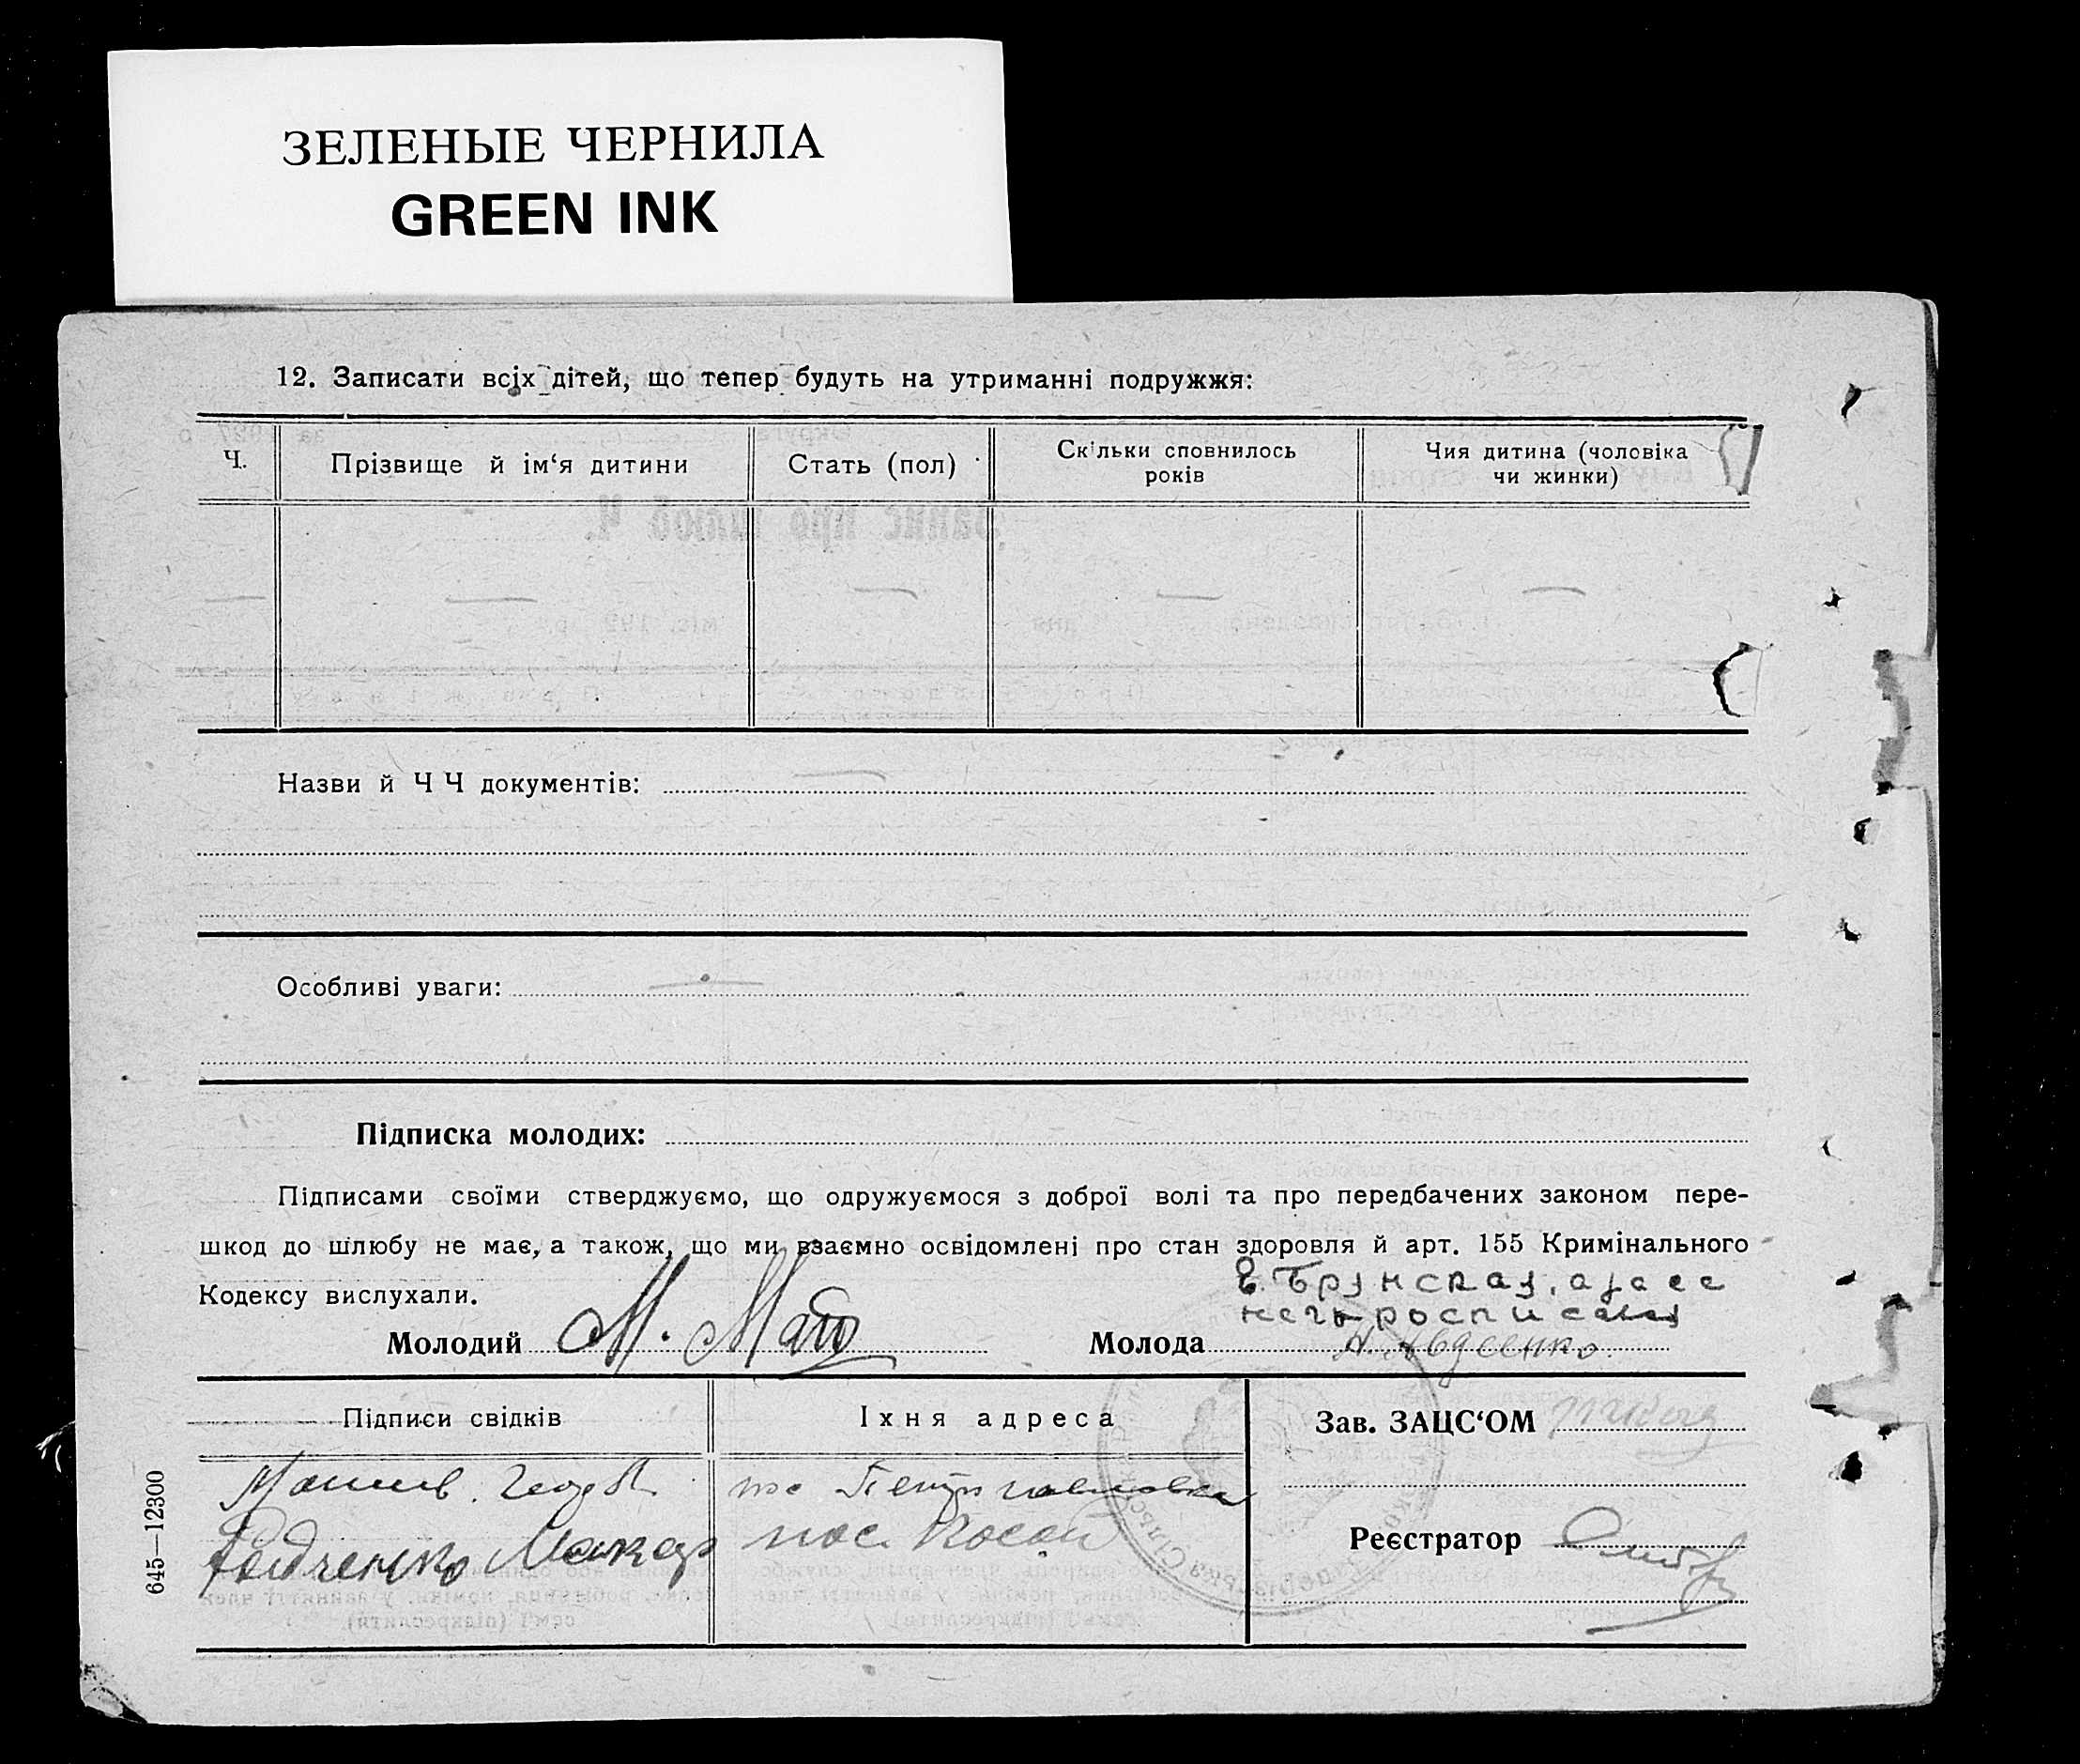 ЗЕЛЕНЫЕ ЧЕРНИЛА
GREEN INK
12. Записати всіх дітей, що тепер будуть на утриманні подружжя:
Ч.
Прізвище й ім‘я дитини
Стать (пол)
Скільки сповнилось
років
Чия дитина (чоловіка
чи жинки)
Назви й Ч Ч документів:
Особливі уваги:
Підписка молодих:
Підписами своїми стверджуємо, що одружуємося з доброї волі та про передбачених законом пере-
шкод до шлюбу не має, а також, що ми взаємно освідомлені про стан здоровля й арт. 155 Кримінального
Кодексу вислухали.
Молодий М.
Молода
Е. Брунская, а за ее
негр росписался
А. Авдеенко.
Підписи свідків
Їхня адреса
Зав. ЗАЦС‘ОМ
Макар
пос. Косой
Реєстратор
645—12300